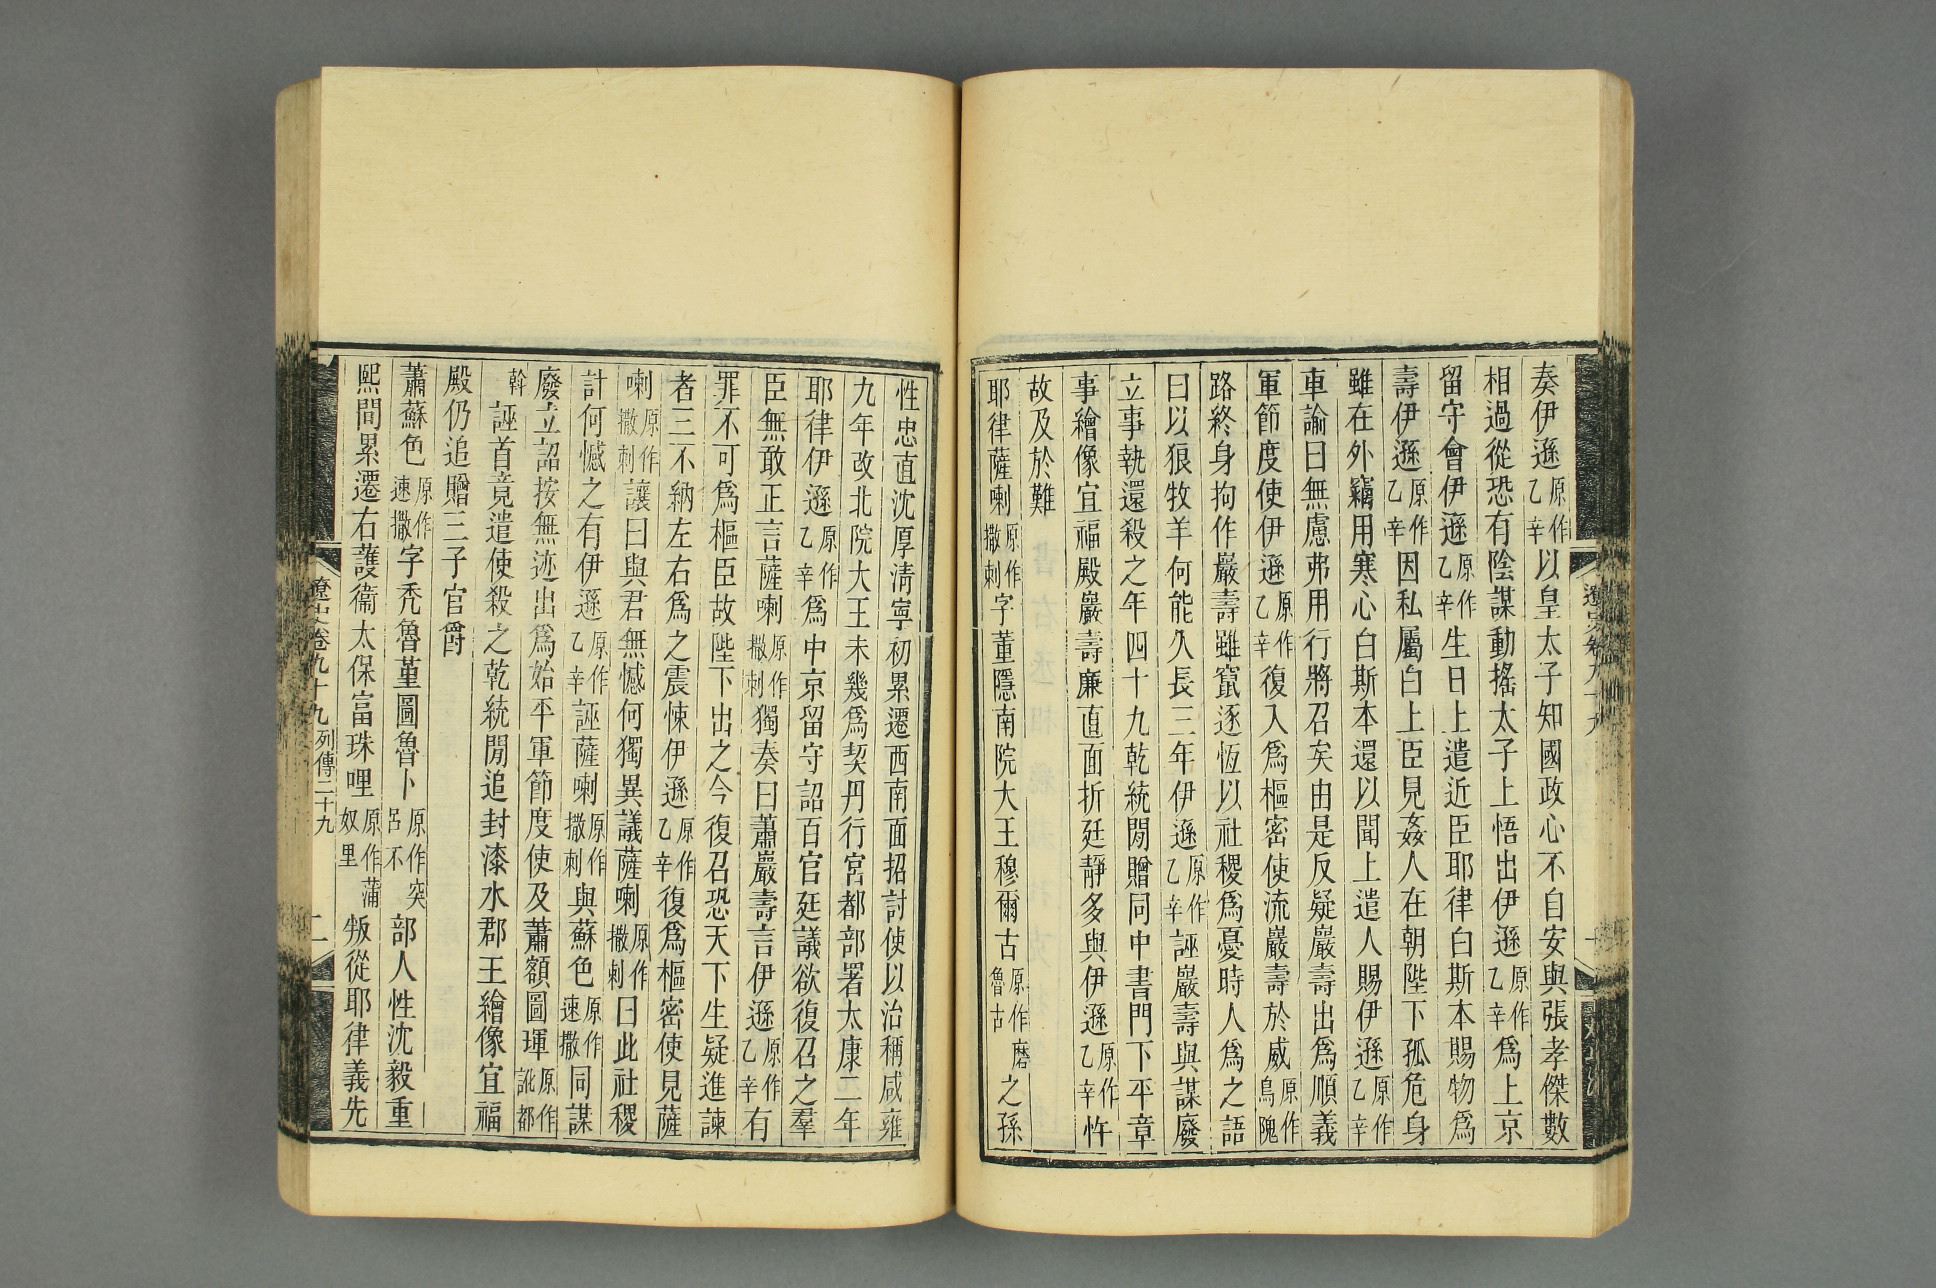 奏伊遜原作乙辛以皇太子知國政心不自安與張孝傑數
相過從恐有陰謀動搖太子上悟出伊遜原作乙辛爲上京
留守會伊遜原作乙辛生日上遣近臣耶律白斯本賜物爲
壽伊遜原作乙辛因私屬白上臣見姦人在朝陛下孤危身
雖在外竊用寒心白斯本還以聞上遣人賜伊遜原作乙辛
車諭曰無慮弗用行將召矣由是反疑巖壽出爲順義
軍節度使伊遜原作乙辛復入爲樞密使流巖壽於威原作烏隗
路終身拘作巖壽雖竄逐恆以社稷爲憂時人爲之語
曰以狼牧羊何能久長三年伊遜原作乙辛誣巖壽與謀廢
立事執還殺之年四十九乾統閒贈同中書門下平章
事繪像宜福殿巖壽廉直面折廷靜多與伊遜原作乙辛忤
故及於難
耶律薩喇原作撒剌字董隱南院大王穆爾古原作磨魯古之孫
性忠直沈厚清寧初累遷西南面招討使以治稱咸雍
九年改北院大王未幾爲契丹行宮都部署太康二年
耶律伊遜原作乙辛爲中京留守詔百官廷議欲復召之羣
臣無敢正言薩喇原作撒剌獨奏曰蕭巖壽言伊遜原作乙辛有
罪不可爲樞臣故陛下出之今復召恐天下生疑進諫
者三不納左右爲之震悚伊遜原作乙辛復爲樞密使見薩
喇原作撒剌讓曰與君無憾何獨異議薩喇原作撒剌曰此社稷
計何憾之有伊遜原作乙辛誣薩喇原作撒剌與蘇色原作速撒同謀
廢立詔按無迹出爲始平軍節度使及蕭額圖琿原作訛都
斡誣首竟遣使殺之乾統閒追封漆水郡王繪像宜福
殿仍追贈三子官爵
蕭蘇色原作速撒字禿魯菫圖魯卜原作突呂不部人性沈毅重
熙間累遷右護衞太保富珠哩原作蒲奴里叛從耶律義先
遼史卷九十九列傳二十九
二